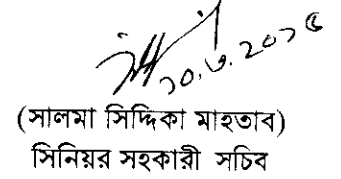 ১০.৬.২০১৫
(সালমা সিদ্দিকা মাহতাব)
সিনিয়র সহকারী সচিব